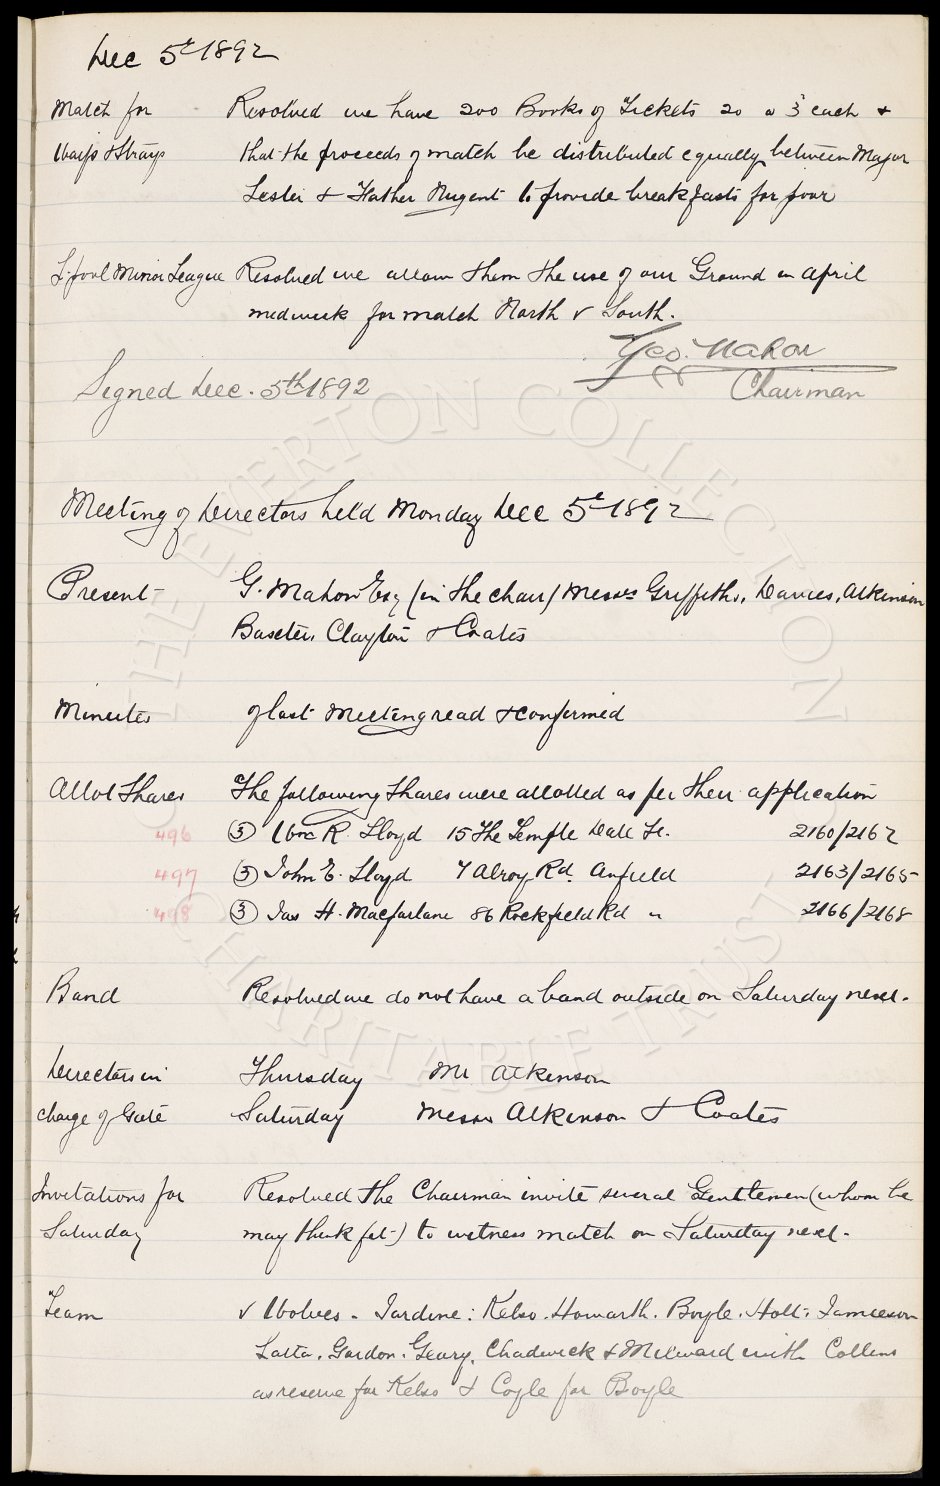 Dec 5th 1892
Match for Resolved we have 200 Books of Tickets 20 @ 3d each &
Waifs & Strays that the proceeds of match be distributed equally between Major
Lester & Father Nugent to provide breakfasts for poor
L'pool Minor League Resolved we allow them the use of our Ground in April
midweek for match North v South.
Geo. Mahon
Signed Dec. 5th 1892 Chairman
Meeting of Directors held Monday Dec 5th 1892
Present - G. Mahon Esq (in the chair) Messrs Griffiths, Davies, Atkinson
Baxter, Clayton & Coates
Minutes of last meeting read & confirmed
Allot Shares The following shares were allotted as per their application
496 (3) Wm R. Lloyd 15 The Temple Dale St. 2160/2162
497 (3) John E. Lloyd 7 Alroy Rd. Anfield 2163/2165
498 (3) Jas H. Macfarlane 86 Rockfield Rd " 2166/2168
Band Resolved we do not have a band outside on Saturday next.
Directors in Thursday Mr Atkinson
charge of Gate Saturday Messrs Atkinson & Coates
Invitations for Resolved the Chairman invite several Gentlemen (whom he
Saturday may think fit) to witness match on Saturday next.
Team v Wolves - Jardine: Kelso. Howarth. Boyle. Holt. Jamieson
Latta. Gordon. Geary. Chadwick & Milward with Collins
as reserve for Kelso & Coyle for Boyle
THE EVERTON COLLECTION
CHARITABLE TRUST